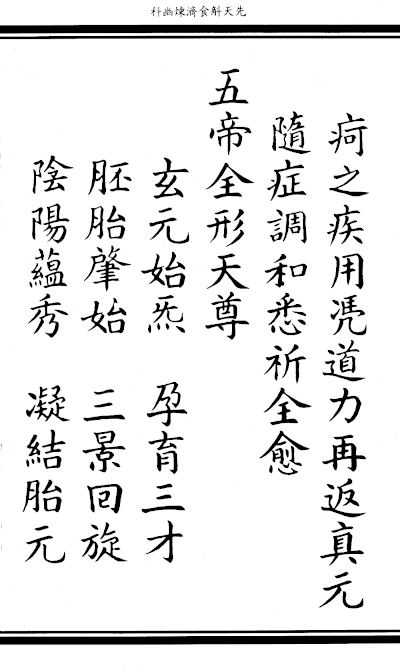 先天斛食濟煉幽科
疴之疾用凴道力再返真元
隨症調和悉祈全愈
五帝全形天尊
玄元始炁　孕育三才
胚胎肇始　三景回旋
陰陽蘊秀　凝結胎元